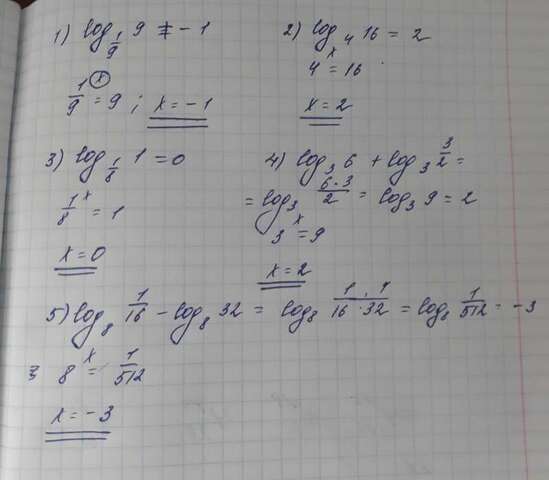 1) log_{1/9} 9 = -1
1/9^x = 9 ; x = -1
2) log_4 16 = 2
4^x = 16
x = 2
3) log_{1/8} 1 = 0
1/8^x = 1
x = 0
4) log_3 6 + log_3 3/2 =
= log_3 6·3/2 = log_3 9 = 2
3^x = 9
x = 2
5) log_8 1/16 - log_8 32 = log_8 1·1/16·32 = log_8 1/512 = -3
8^x = 1/512
x = -3